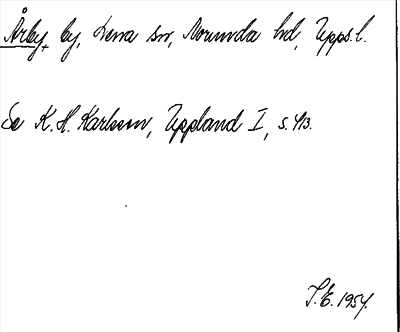 Årby, by, Lena sn, Norunda hd, Upps. l.
Se K. H. Karlsson, Uppland I, s. 413.
T. E. 1954.